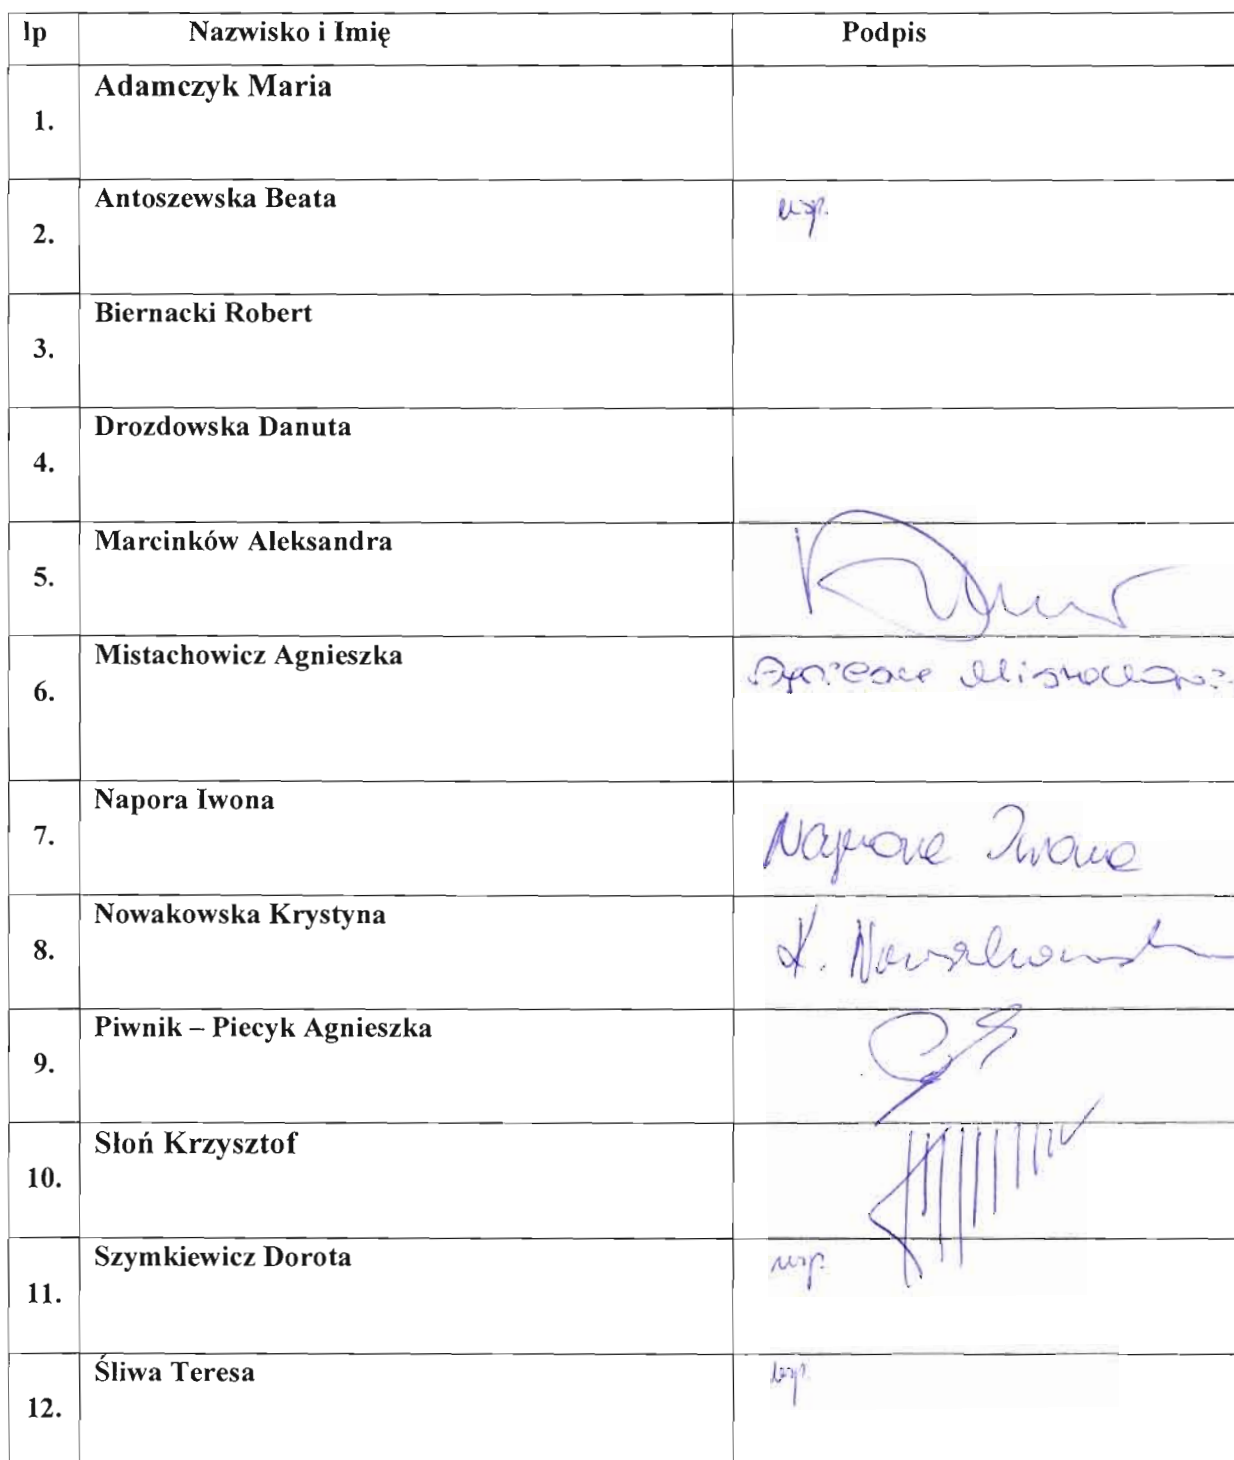 lp Nazwisko i Imię Podpis
1. Adamczyk Maria
2. Antoszewska Beata usp.
3. Biernacki Robert
4. Drozdowska Danuta
5. Marcinków Aleksandra
6. Mistachowicz Agnieszka
7. Napora Iwona Napora Iwona
8. Nowakowska Krystyna K. Nowakowska
9. Piwnik – Piecyk Agnieszka
10. Słoń Krzysztof
11. Szymkiewicz Dorota usp.
12. Śliwa Teresa usp.